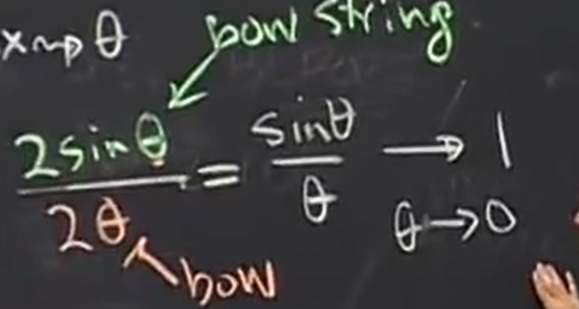 x ⇝ θ
bow string
2sinθ / 2θ = sinθ / θ → 1
θ → 0
bow